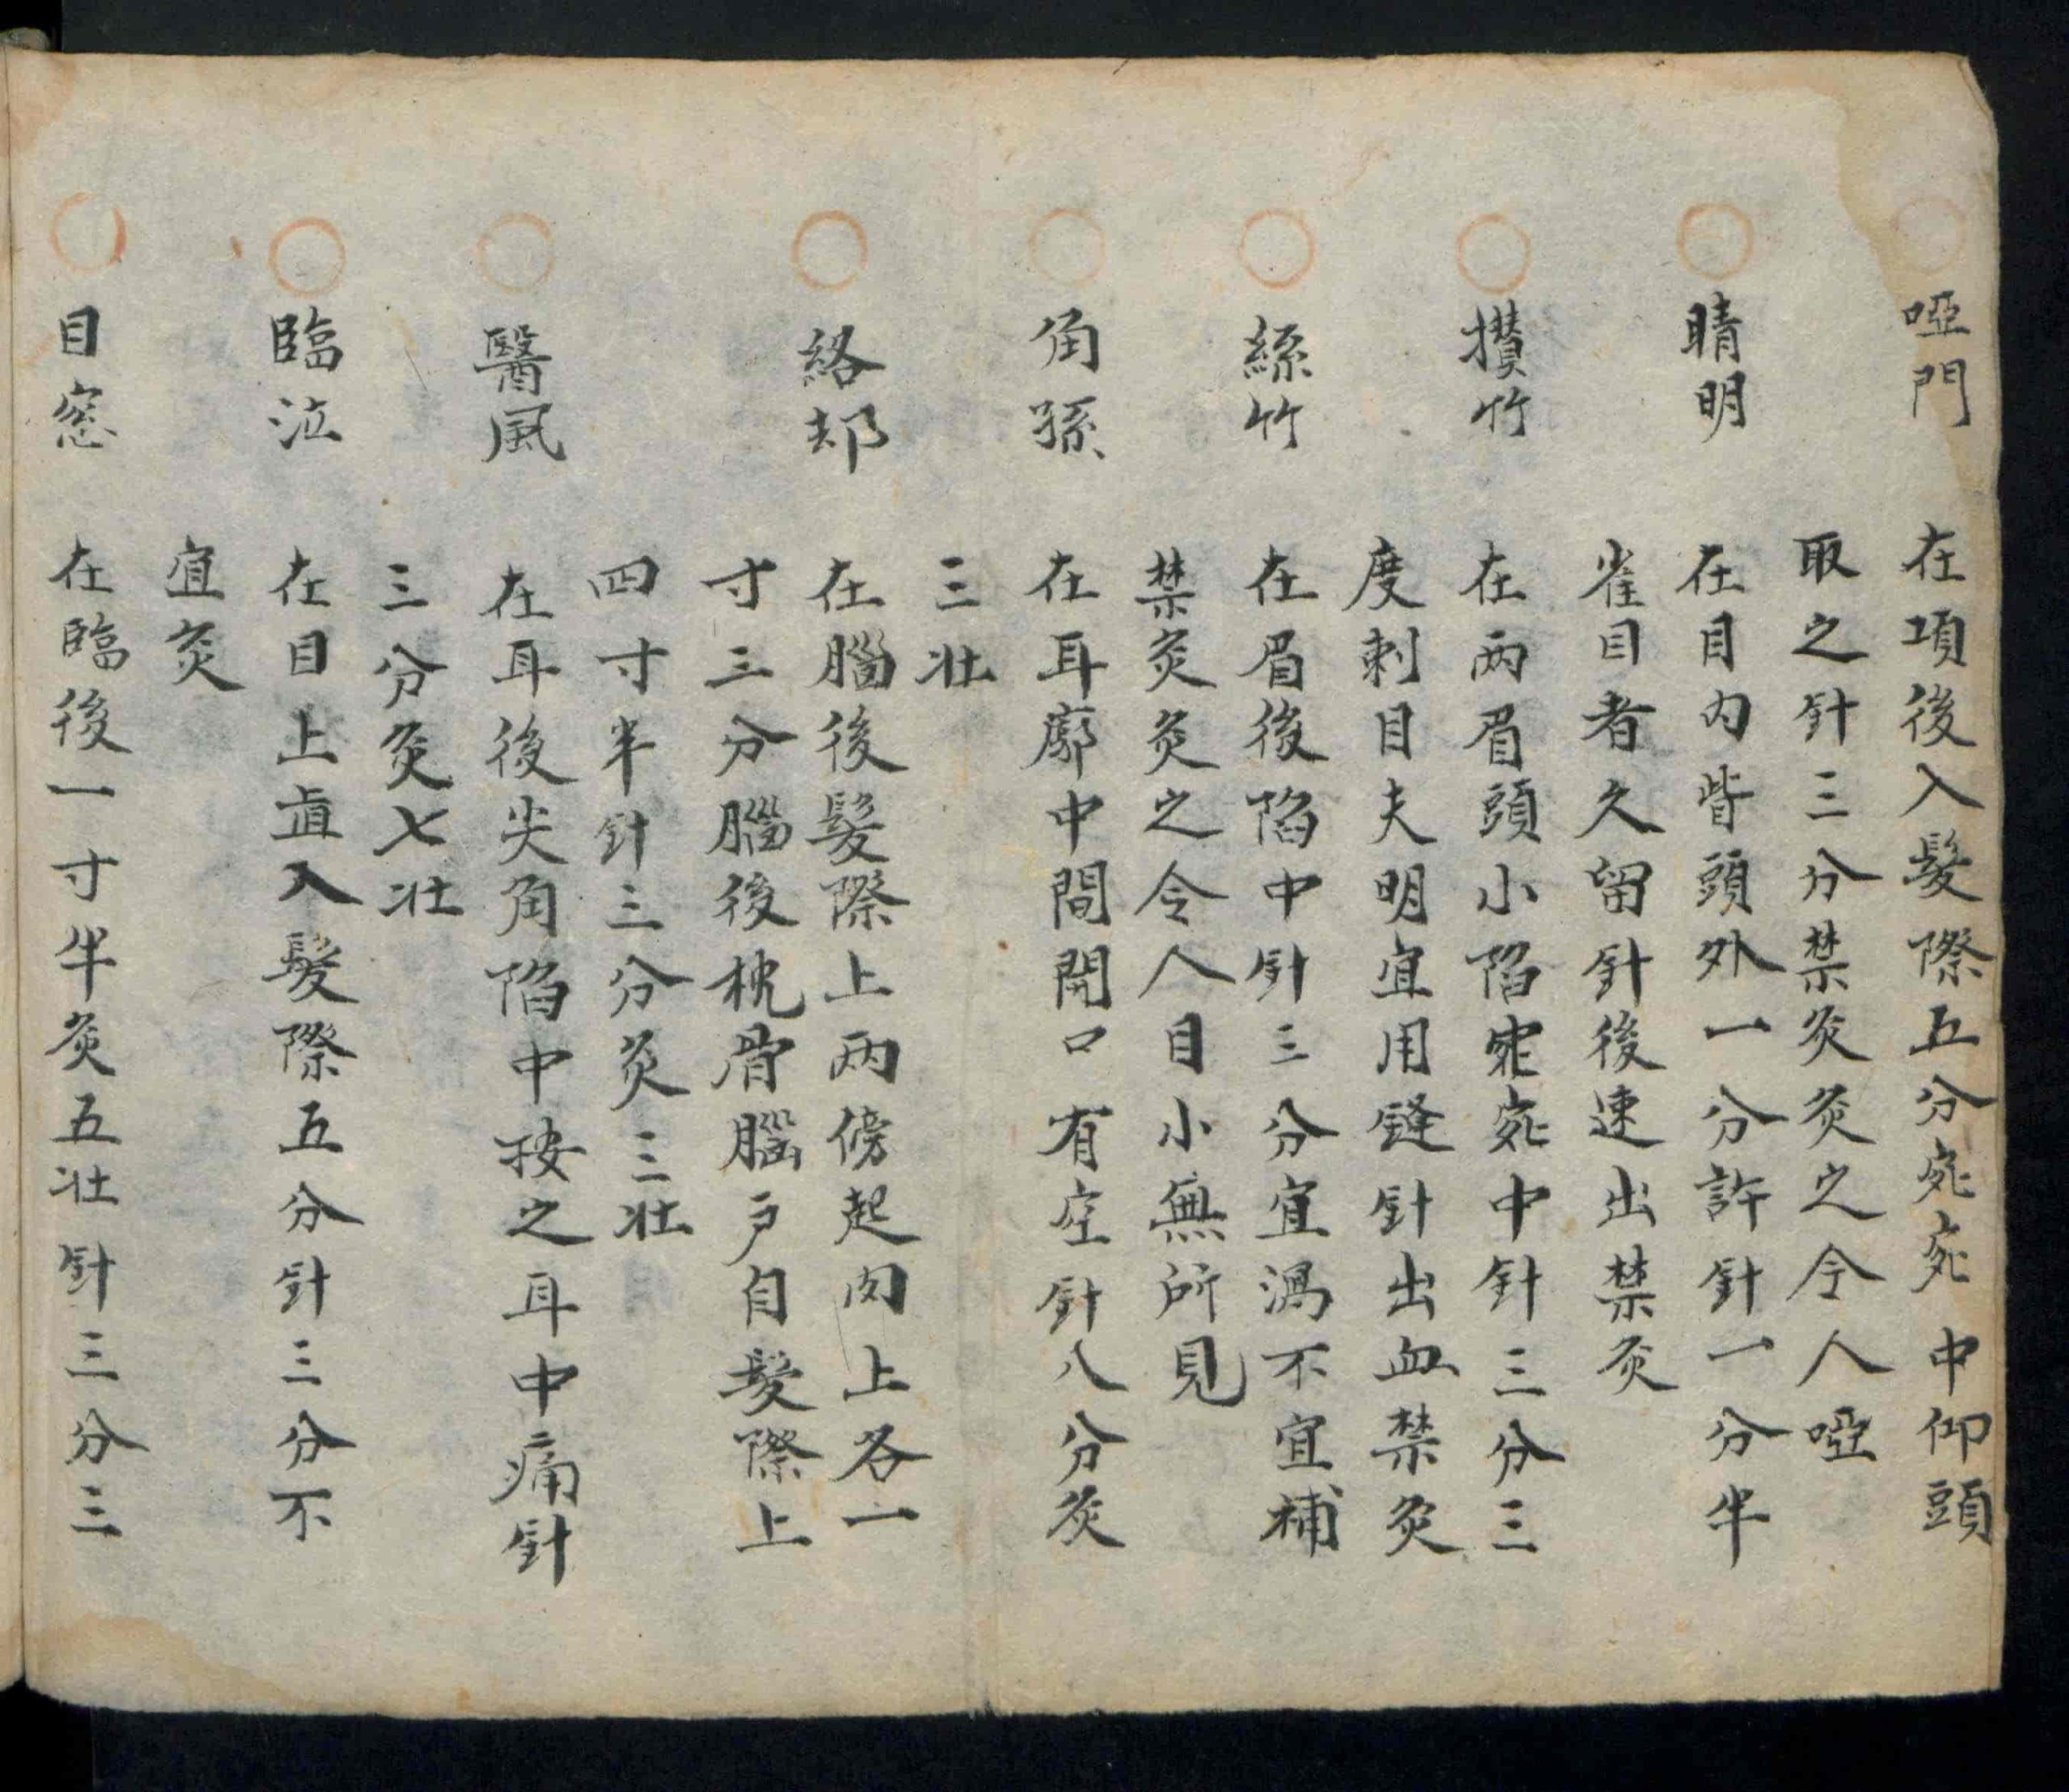 啞門 在項後入髮際五分宛宛中仰頭
取之針三分禁灸灸之令人啞
睛明 在目內眥頭外一分許針一分半
雀目者久留針後速出禁灸
攅竹 在兩眉頭小陷宛宛中針三分三
度刺目夫明宜用鋒針出血禁灸
絲竹 在眉後陷中針三分宜瀉不宜補
禁灸灸之令人目小無所見
角孫 在耳廓中間開口有空針八分灸
三壯
絡却 在腦後髮際上兩傍起肉上各一
寸三分腦後枕骨腦戶自髮際上
四寸半針三分灸三壯
醫風 在耳後尖角陷中按之耳中痛針
三分灸七壯
臨泣 在目上直入髮際五分針三分不
宜灸
目窓 在臨後一寸半灸五壯針三分三